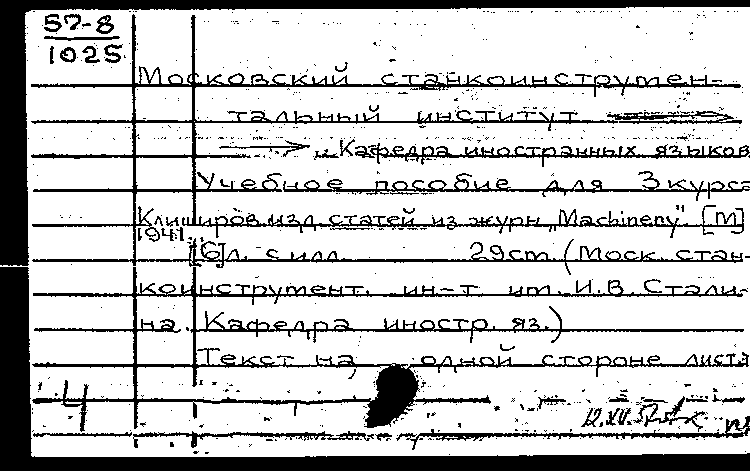 57-8
1025
Московский станкоинструмен-
тальный институт
„ Кафедра иностранных языков
Учебное пособие для 3 курса
Клиширов. изд. статей из журн „Machinery". [М]
1941. [6]л. с илл. 29cm. (Моск. стан-
коинструмент. ин-т им. И.В. Стали-
на. Кафедра иностр. яз.)
Текст на одной стороне листа
4